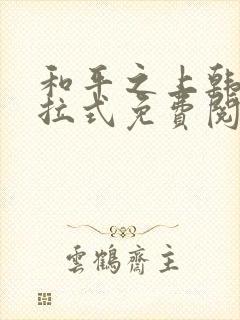 和平之上韩
拉式免費閱
雲鶴齋主